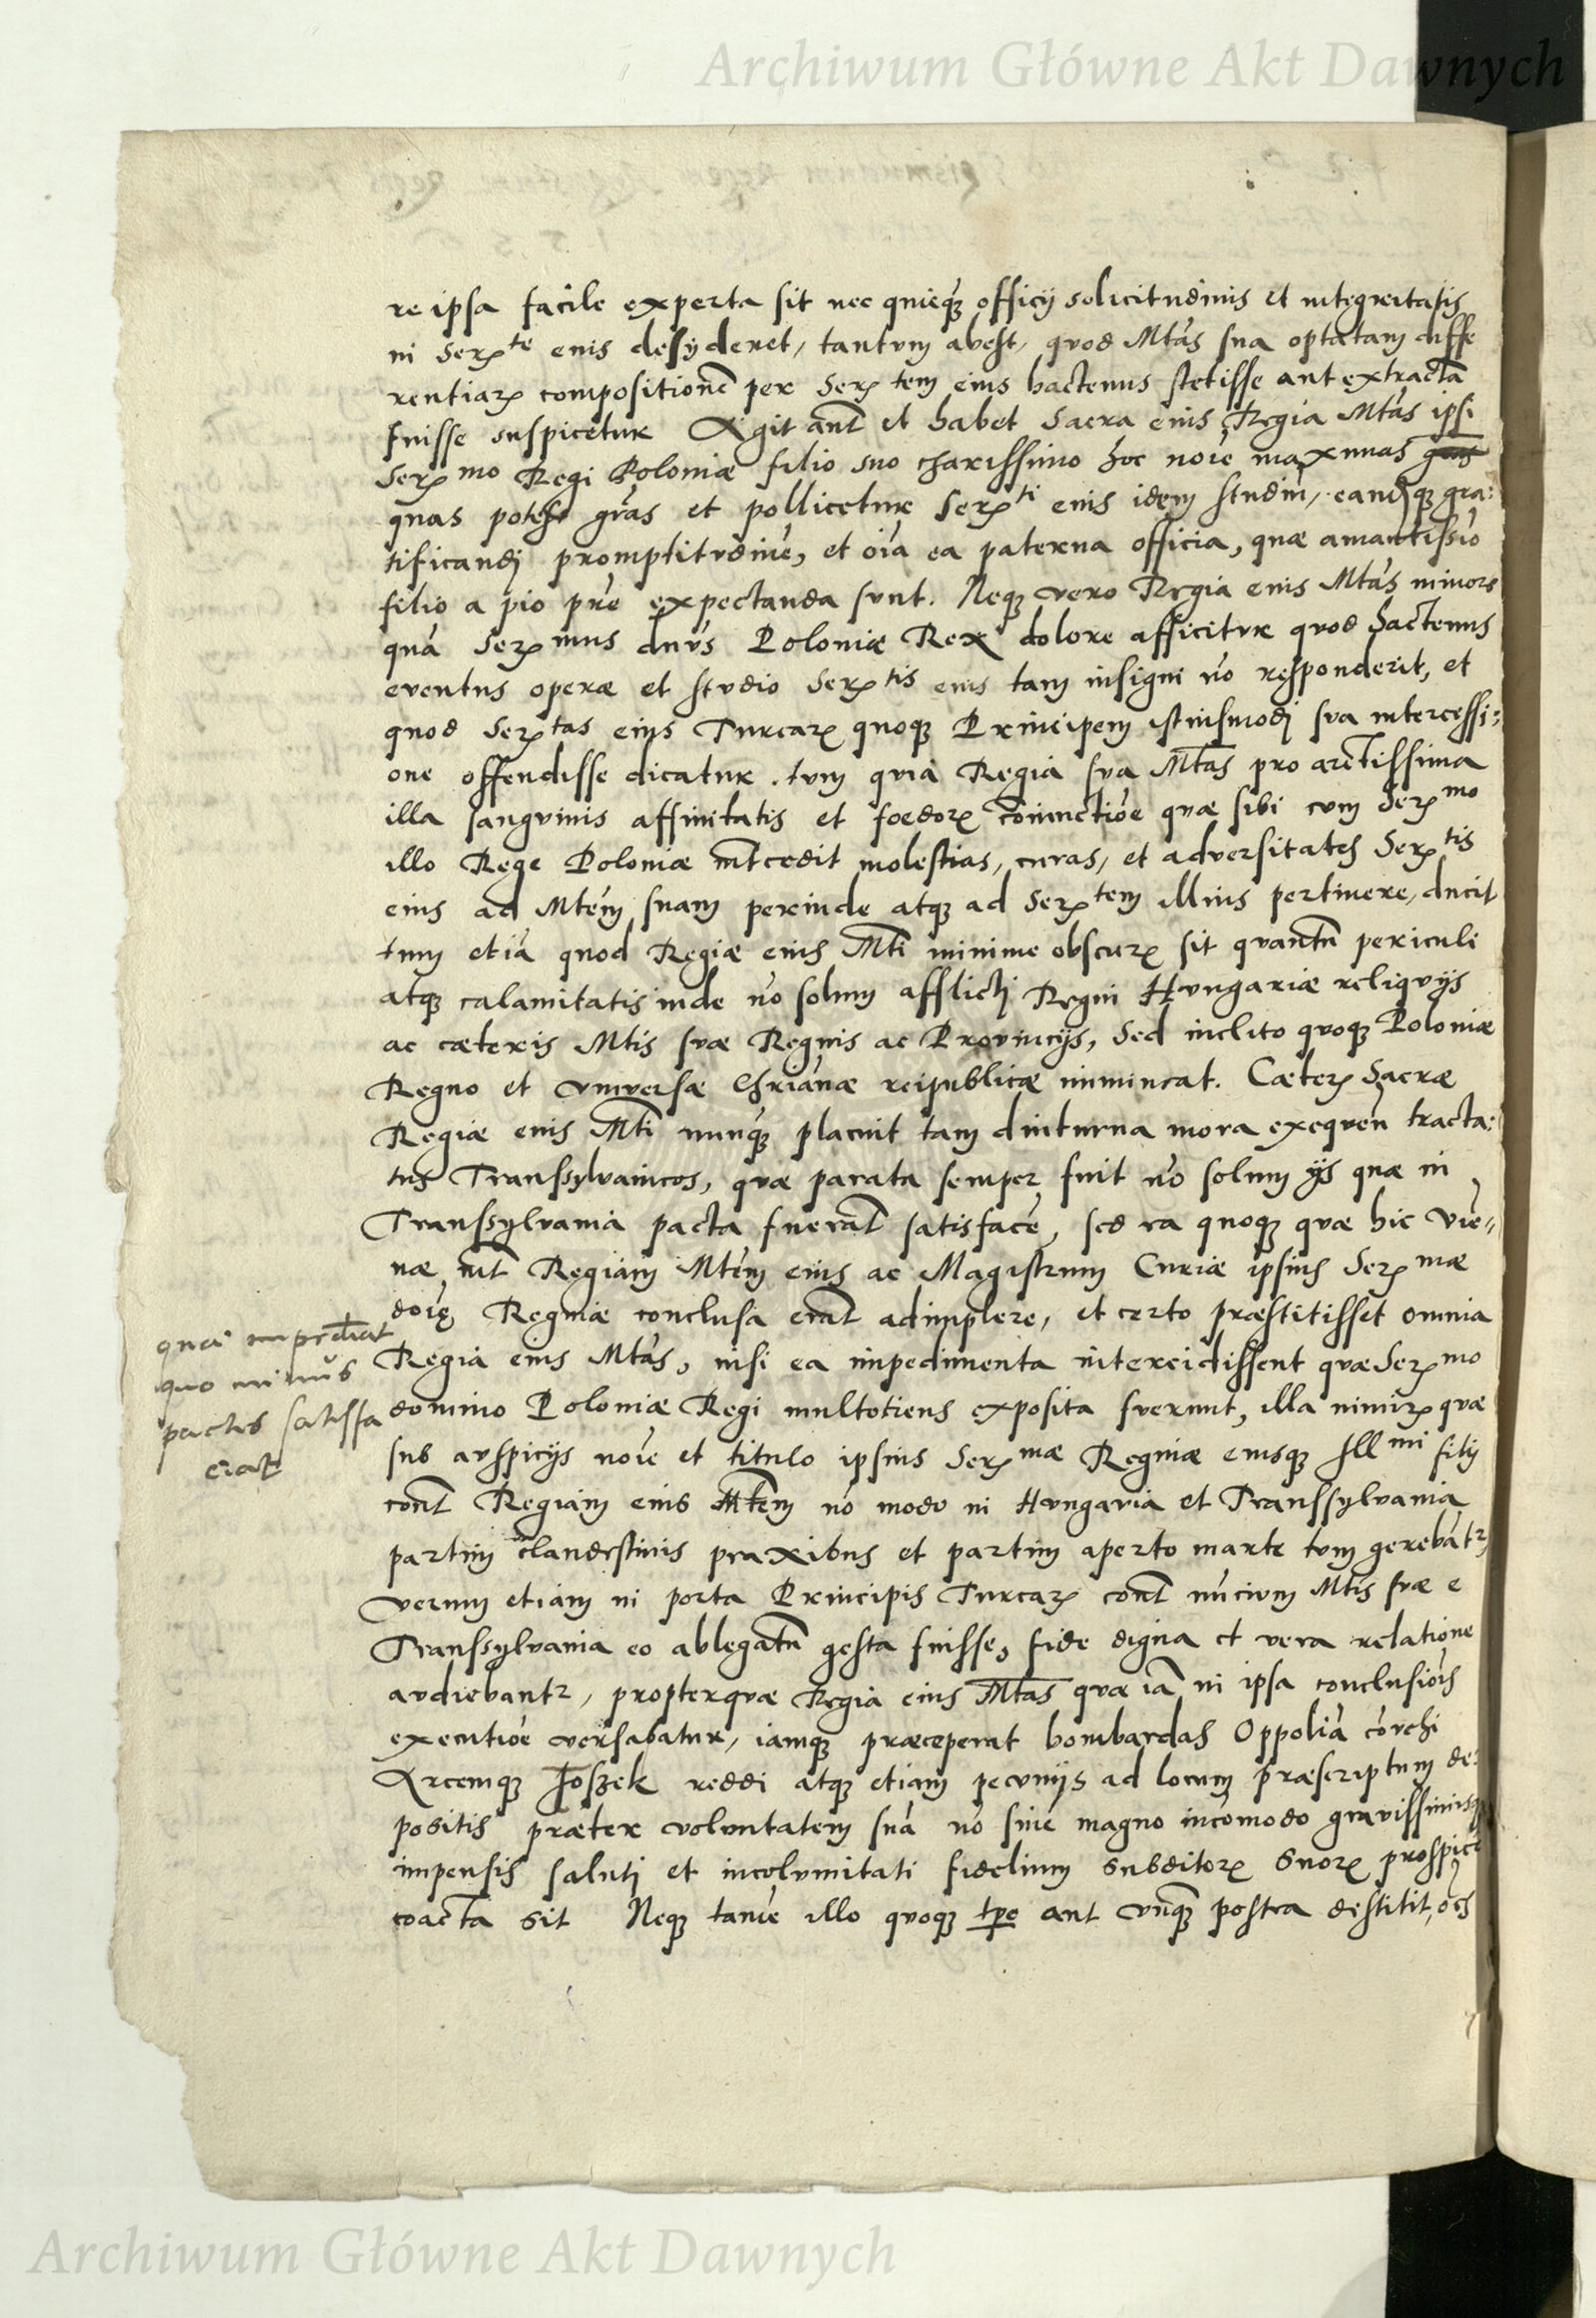 Archiwum Główne Akt Dawnych
re ipsa facile experta sit nec quicq̃ officij solicitudinis et integritatis
in Serꝫte eius desyderet, tantum abest, quod Mtas sua optatam diffe
rentiarꝫ compositionẽ per Serꝫtem eius hactenus stetisse aut extractã
fuisse suspicetur Agit aũt et habet Sacra eius Regia Mtas ipsi
Serꝫmo Regi Poloniæ filio suo charissimo hoc noĩe maximas
quas potest grãs et pollicetur Serꝫti eius idem studiũ, eandẽqꝫ gra:
tificandi promptitudinẽ, et oĩa ea paterna officia, quæ amantissĩo
filio a pio pr̃e expectanda sunt. Neqꝫ vero Regia eius Mtas minore
quã Serꝫmus dñus Poloniæ Rex dolore afficitur quod hactenus
eventus operæ et studio Serꝫtis eius tam insigni nõ responderit, et
quod Serꝫtas eius Turcarꝫ quoqꝫ Principem istiusmodi sua intercessi:
one offendisse dicatur. tum quia Regia sua Mtas pro arctissima
illa sanguinis affinitatis et foedorꝫ coniunctiõe quæ sibi cum Serꝫmo
illo Rege Poloniæ intcedit molestias, curas, et adversitates Serꝫtis
eius ad Mtem suam perinde atqꝫ ad Serꝫtem illius pertinere, ducit
tum etiã quod Regiæ eius Mti minime obscurꝫ sit quantũ periculi
atqꝫ calamitatis inde nõ solum afflicti Regni Hungariæ reliquijs
ac cæteris Mtis suæ Regnis ac Provincijs, Sed inclito quoqꝫ Poloniæ
Regno et universæ Chriãnæ reipublicæ immineat. Cæterꝫ Sacræ
Regiæ eius Mti nunq̃ placuit tam diuturna mora exequeñ tracta:
tus Transsylvanicos, quæ parata semper fuit nõ solum ijs quæ in
Transsylvania pacta fuerãt satisfacẽ, sed ea quoqꝫ quæ hic Viẽ„
næ int Regiam Mtem eius ac Magistrum Curiæ ipsius Serꝫmæ
doĩę Reginæ conclusa erãt adimplere, et certo præstitisset omnia
Regia eius Mtas, nisi ea impedimenta intercidissent quæ Serꝫmo
domino Poloniæ Regi multotiens exposita fuerunt, illa nimirꝫ quæ
sub auspicijs noĩe et titulo ipsius Serꝫmæ Reginæ eiusqꝫ Illmi filij
cont Regiam eius Mtem nõ modo in Hungaria et Transsylvania
partim clandestinis praxibus et partim aperto marte tum gerebãtr,
verum etiam in porta Principis Turcarꝫ cont nũcium Mtis suæ e
Transsylvania eo ablegatũ gesta fuisse, fide digna et vera relatione
audiebantr, propterquæ Regia eius Mtas quæ iã in ipsa conclusiõis
executiõe versabatur, iamqꝫ præceperat bombardas Oppoliã cõvehi
Arcemqꝫ Foszek reddi atqꝫ etiam pecunijs ad locum præscriptum de:
positis præter voluntatem suã nõ sine magno incõmodo gravissimisqꝫ
impensis saluti et incolumitati fidelium subditorꝫ suorꝫ prospicẽ
coacta sit Neqꝫ tamẽ illo quoqꝫ tpe aut unq̃ postea destitit, oẽs
quæ impediat
quo minus
pactis satisfa
ciat
Archiwum Główne Akt Dawnych